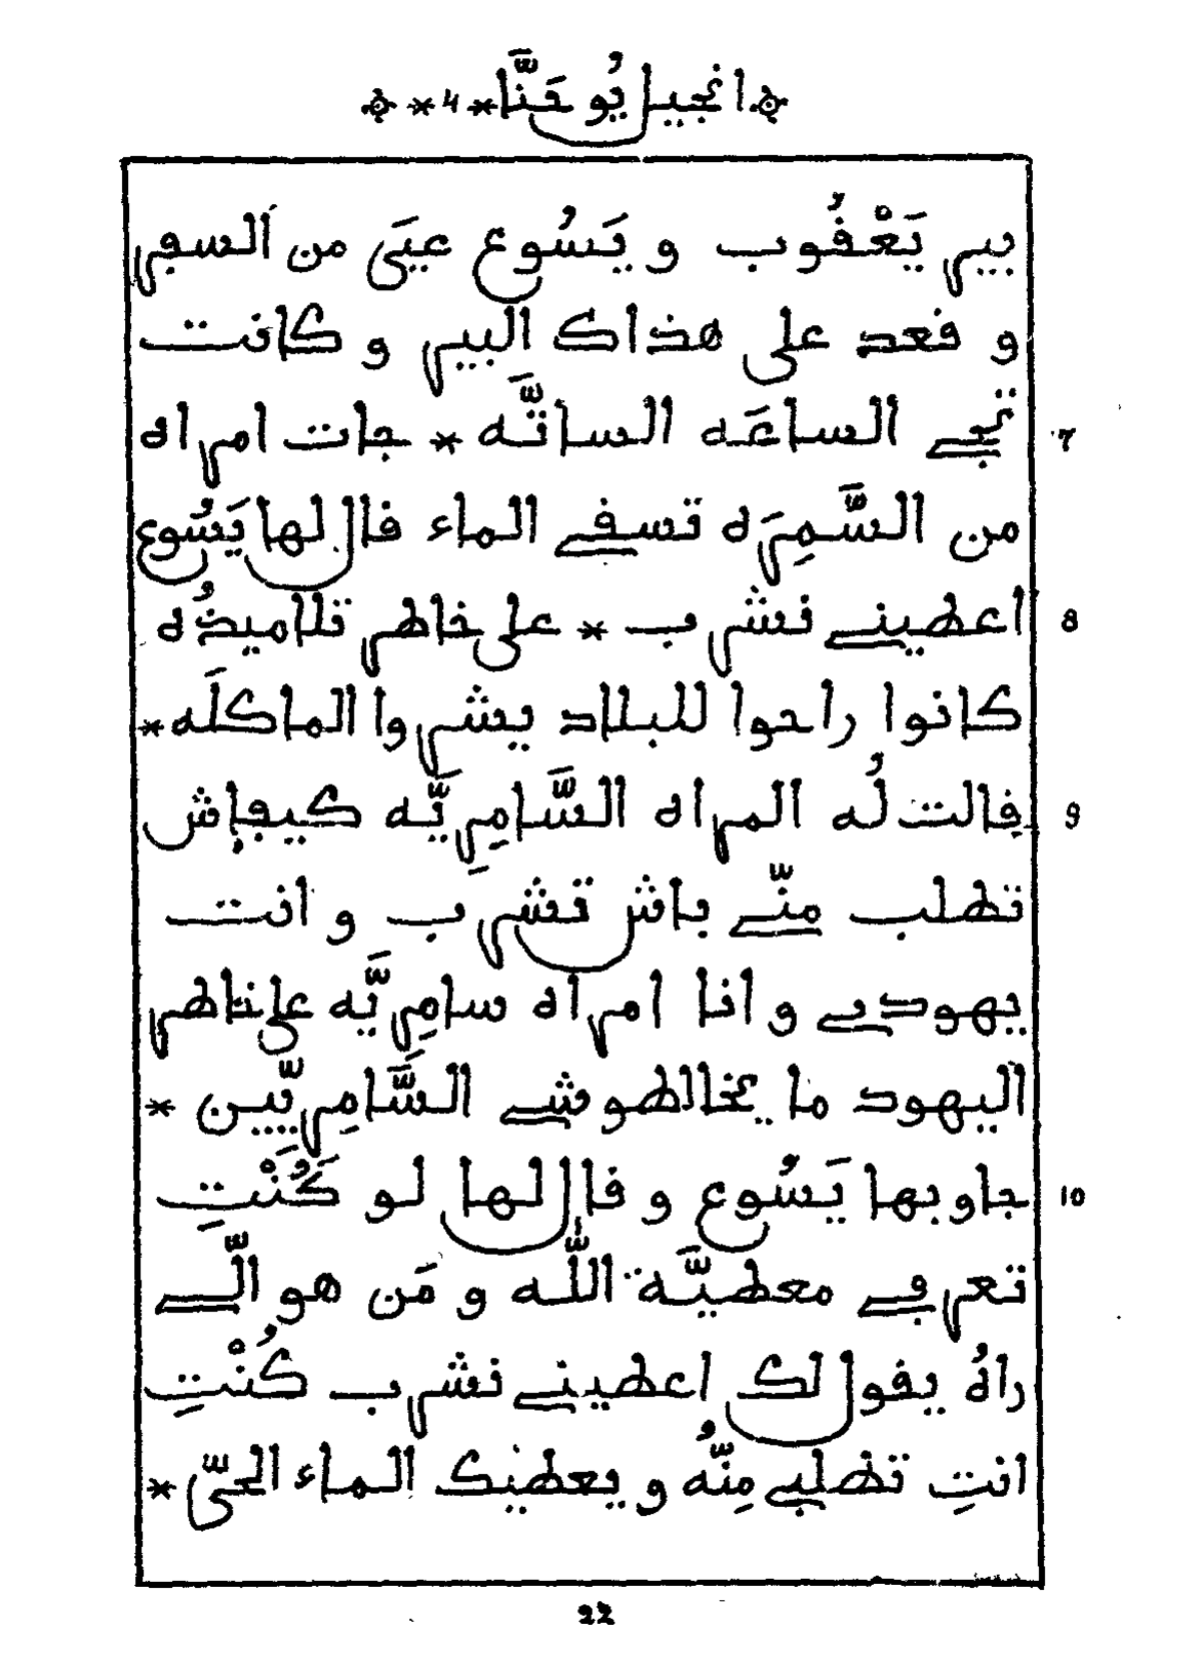 انجيل يُوحَنَّا * 4 *
بير يَعْڧُوب و يَسُوع عيَى من السڢر
و ڧعد على هذاك البير و كانت
تجي الساعَه الساتَّه * جات امراه 7
من السَّمِرَه تسڧي الماء ڧال لها يَسُوع
اعطيني نشرب * على خاطر تلاميذُه 8
كانوا راحوا للبلاد يشروا الماكلَه *
ڧالت لُه المراه السَّامِرِيَّه كيڢاش 9
تطلب منّي باش تشرب و انت
يهودي و انا امراه سامِرِيَّه على خاطر
اليهود ما يخالطوشي السَّامِرِيِّين *
جاوبها يَسُوع و ڧال لها لو كُنْتِ 10
تعرڢي معطيَّة اللّٰه و مَن هو الَّي
راهُ يڧول لك اعطيني نشرب كُنْتِ
انتِ تطلبي مِنُّه و يعطيك الماء الحيّ *
22